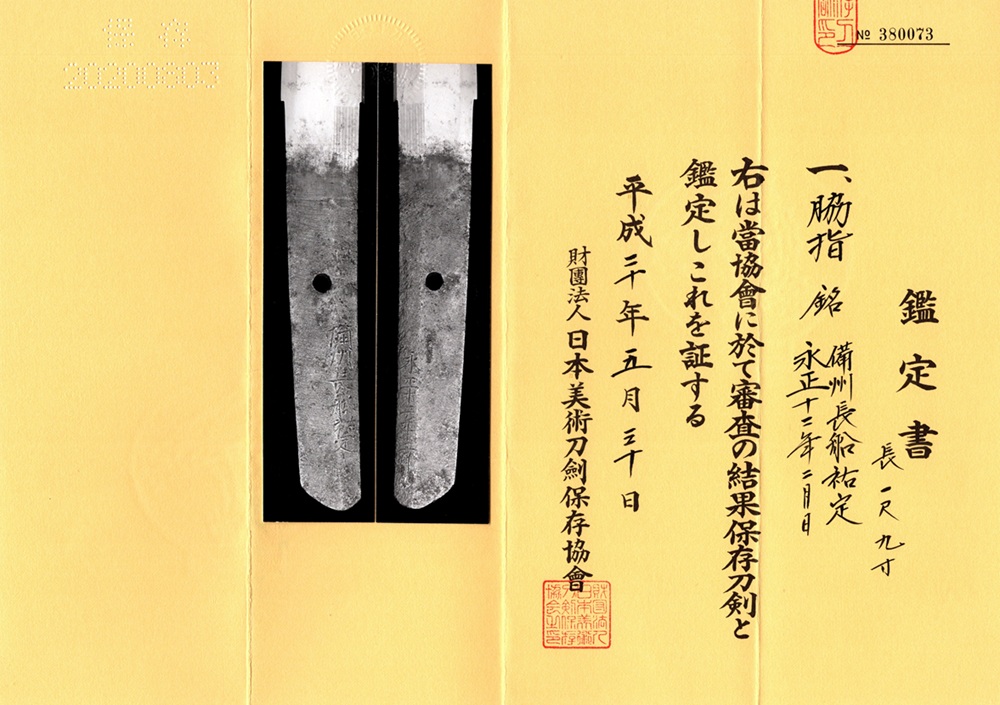 № 380073
鑑定書
長 一尺九寸
一、脇指 銘 備州長船祐定
永正十二年二月日
右は當協會に於て審査の結果保存刀剣と
鑑定しこれを証する
平成二十年五月三十日
財團法人 日本美術刀劍保存協會
保存
20200803